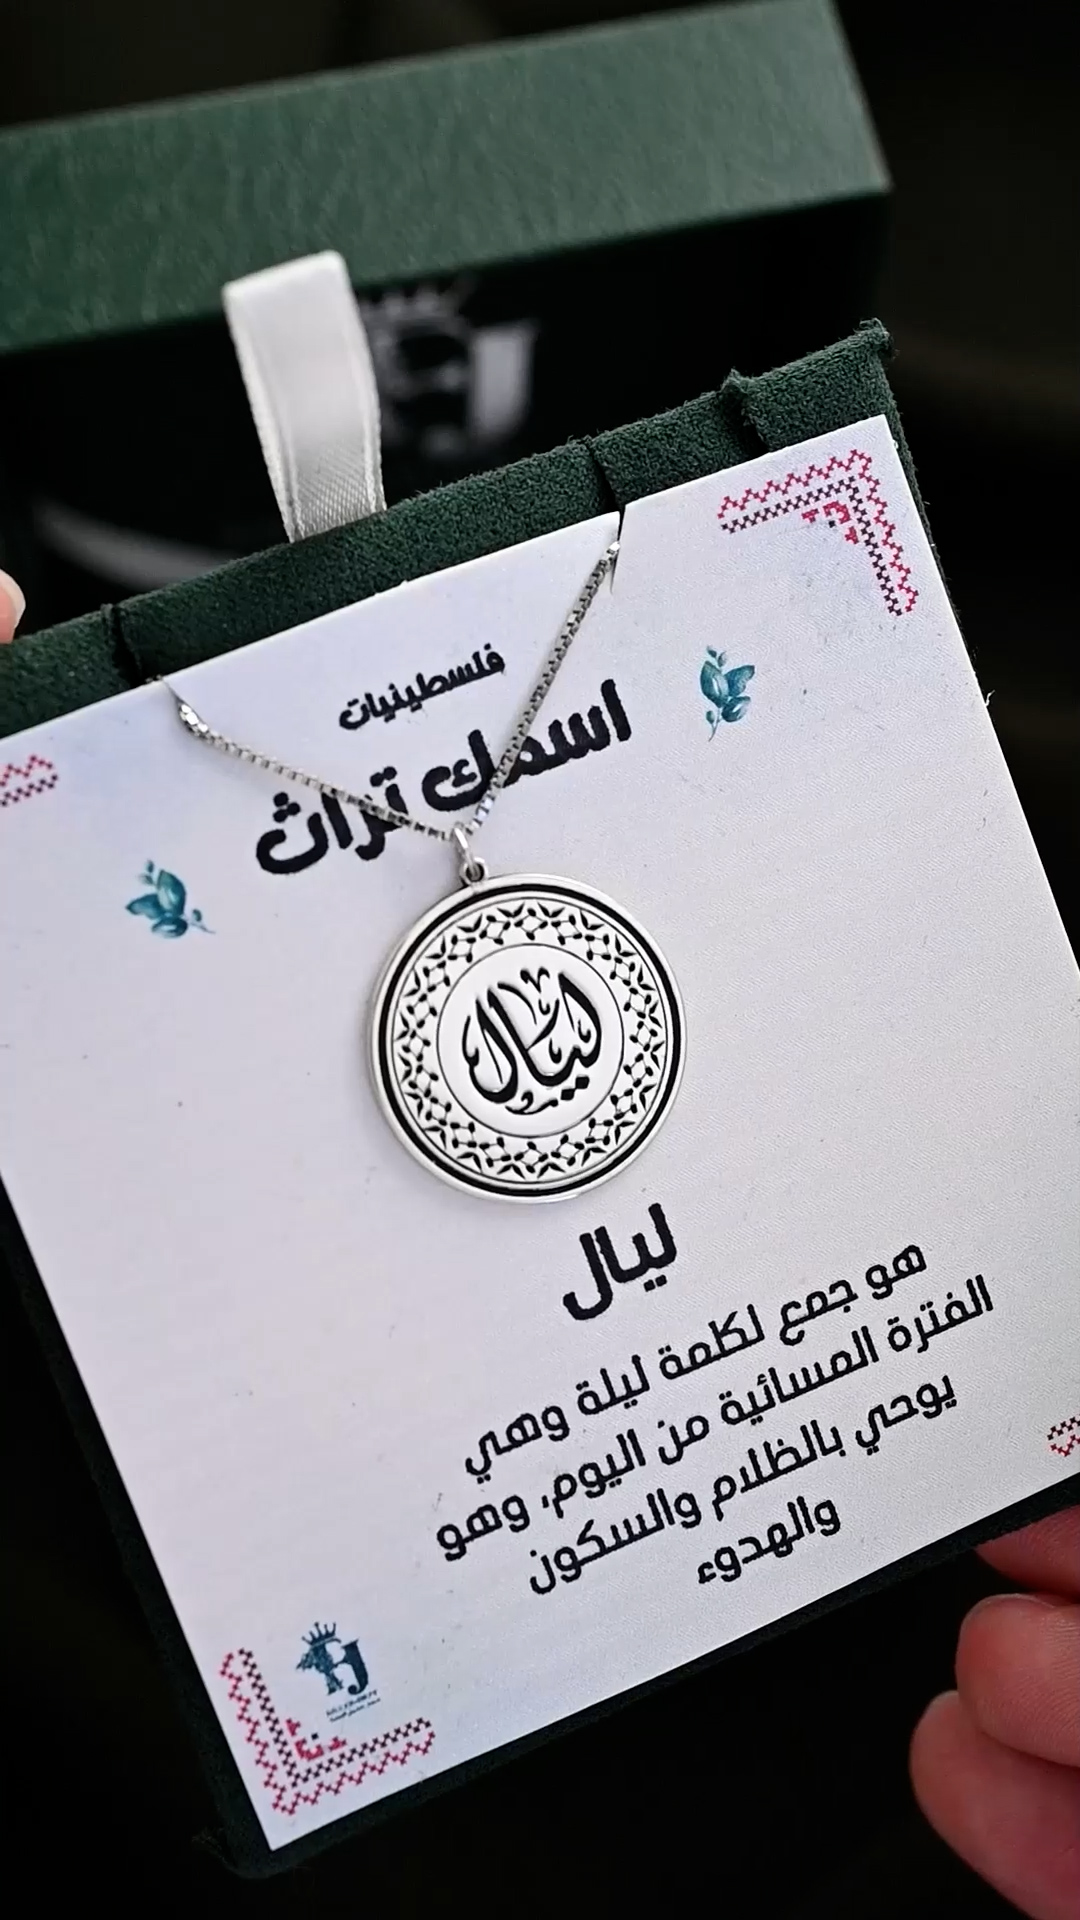 فلسطينيات
اسمك تراث
ليال
ليال
هو جمع لكلمة ليلة وهي
الفترة المسائية من اليوم، وهو
يوحي بالظلام والسكون
والهدوء